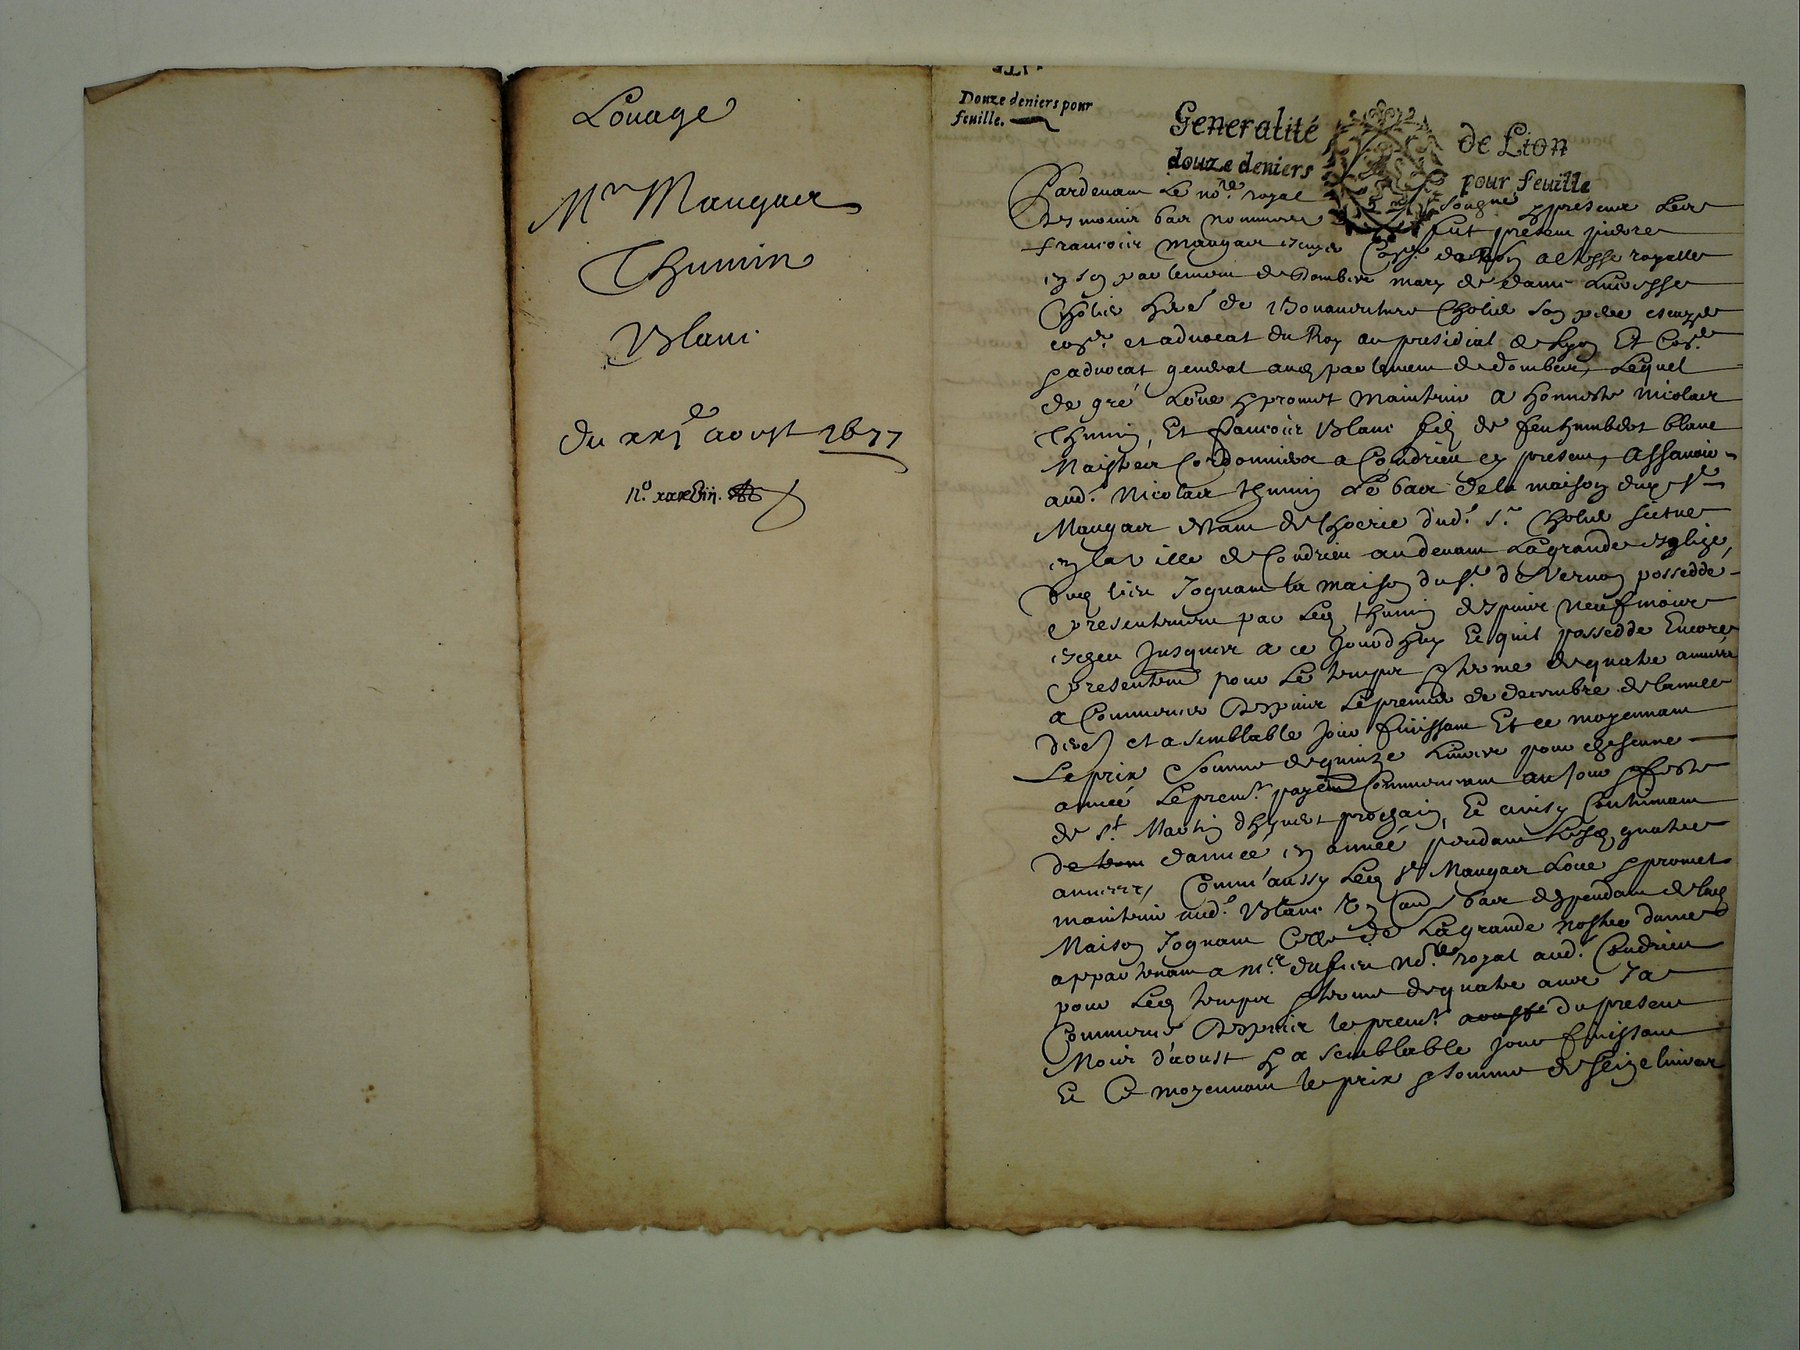 Louage
Mr Maugas
Thumin
Blanc
du xxje aoust 1677
No. xxxviii.
Douze deniers pour
feuille.
Generalité de Lion
douze deniers pour feuille
Pardevant le nore royal soubsigné & presens les
tesmoins bas nommes fut present pierre
francois Maugas Consr de son altesse royalle
en son parlement de Dombes mary de dame
Cholier de Bonaventure Cholier son pere
consr et advocat du Roy au presidial de Lyon Et Consr
& advocat general audit parlement de dombes, Lequel
de gré Loue & promet maintenir a honneste Nicolas
Thumin, Et francois Blanc filz de feu humbert blanc
Maistres Cordonniers a Condrieu cy presens, assavoir
aud. Nicolas thumin Le bas de la maison dud sr
Maugas dud. sr Cholier scitue
en la ville de Condrieu au devant La grande esglize,
dud lieu Jognant la maison du sr de Vernon possedde
presentement par Led thumin despuis neuf mois
Jusques a ce Jourdhuy Et quil possedde Encores
presentemt pour Le temps & terme de quatre années
a Commencer despuis Le premier de decembre de lannée
et a semblable jour finissant Et ce moyennant
Le prix & somme de quinze Livres pour chescune
année Le premr payemt Commencant au jour & feste
de st Martin dhyvert prochain, Et ainsy Continuant
de term dannée en année pendant Lesd quatre
années, Comm'aussy Led sr Maugas Loue & promet
maintenir aud. Blanc bas despendant de lad
Maison Jognant Celle de La grande nostre dame
appartenant a Mre nore royal aud. Condrieu
pour Led temps & terme de quatre ans Ja
Commencé despuis le premr aoust du present
Mois d'aoust & a semblable jour finissant
Et Ce moyennant le prix & somme de seize livres